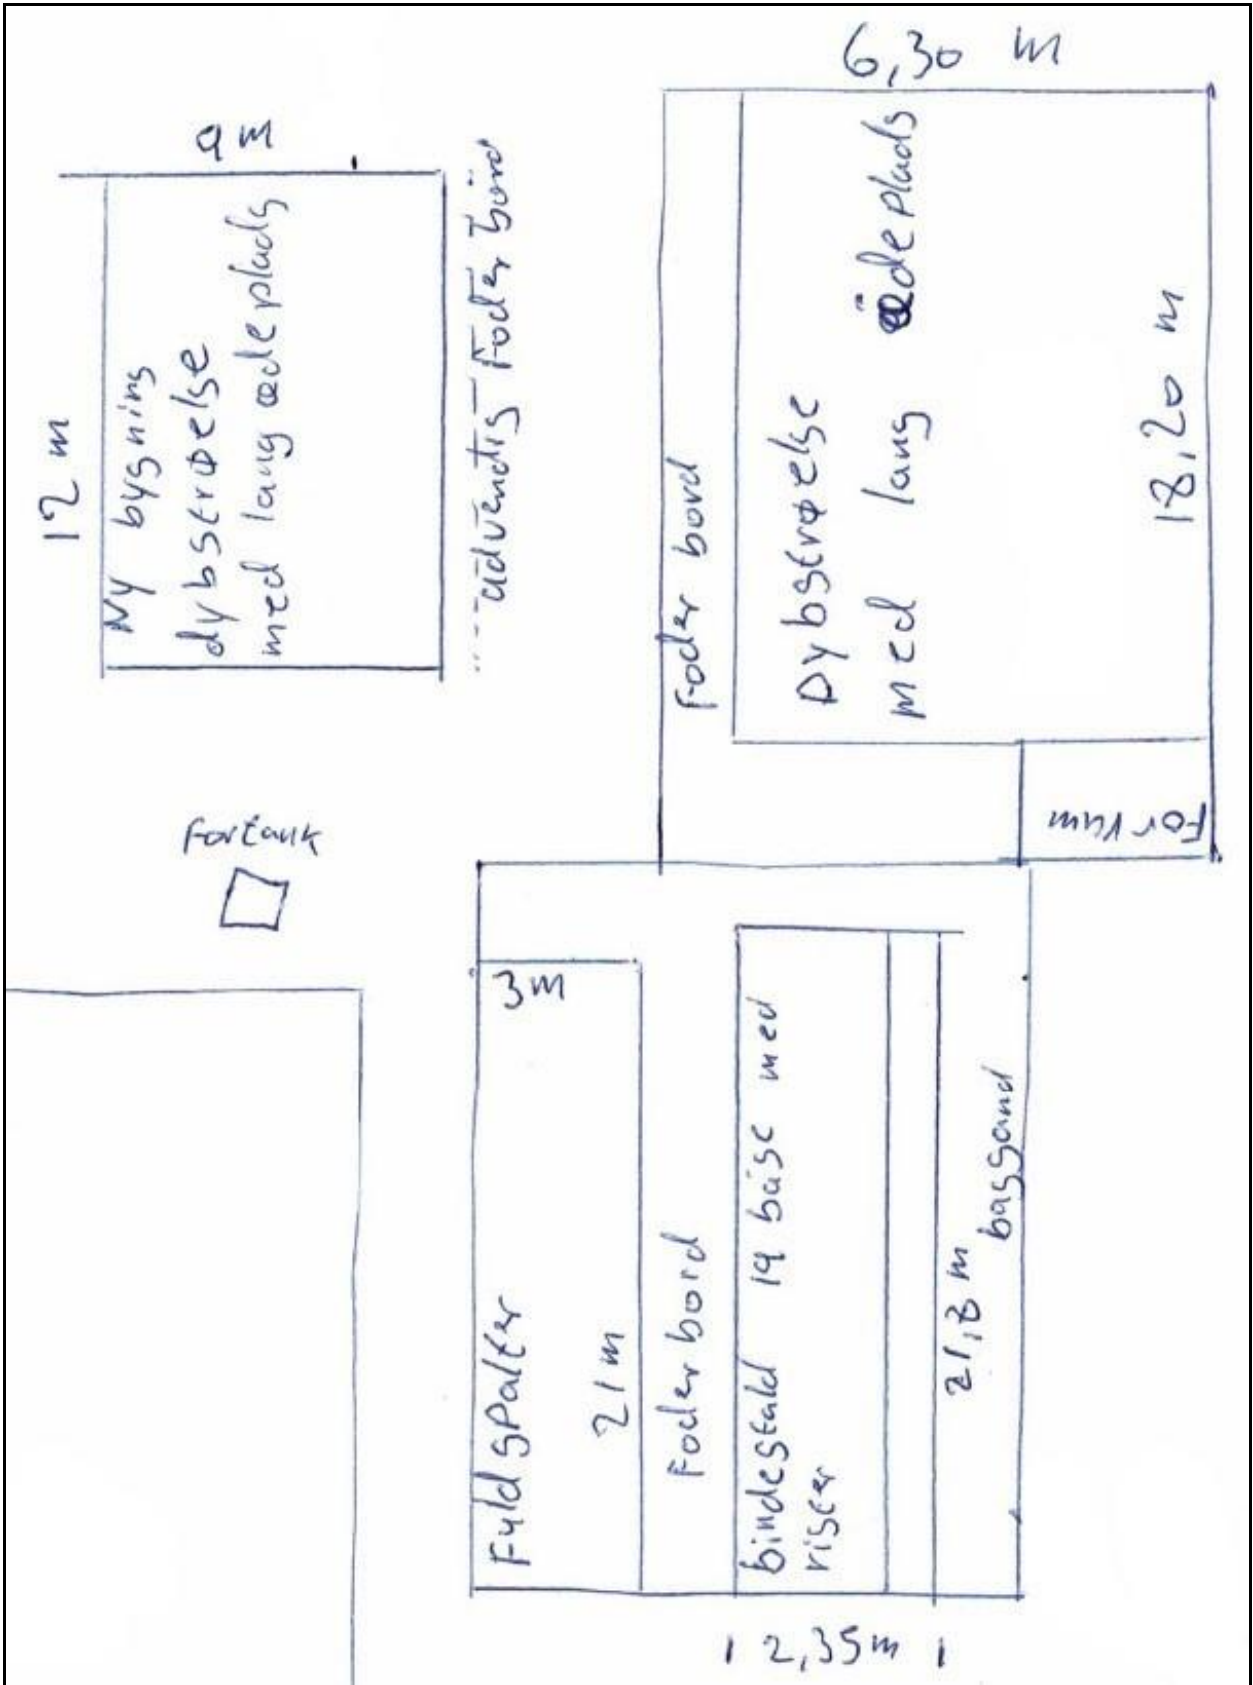 12 m
9 m
Ny bygning
dybstrøelse
med lang ædeplads
udvendig Foder bord
6,30 m
Foder bord
Dybstrøelse
med lang ædeplads
18,20 m
For rum
Fortank
3 m
Fuld spalter
21 m
Foder bord
bindestald 19 båse med
rister
21,8 m
baggand
2,35 m